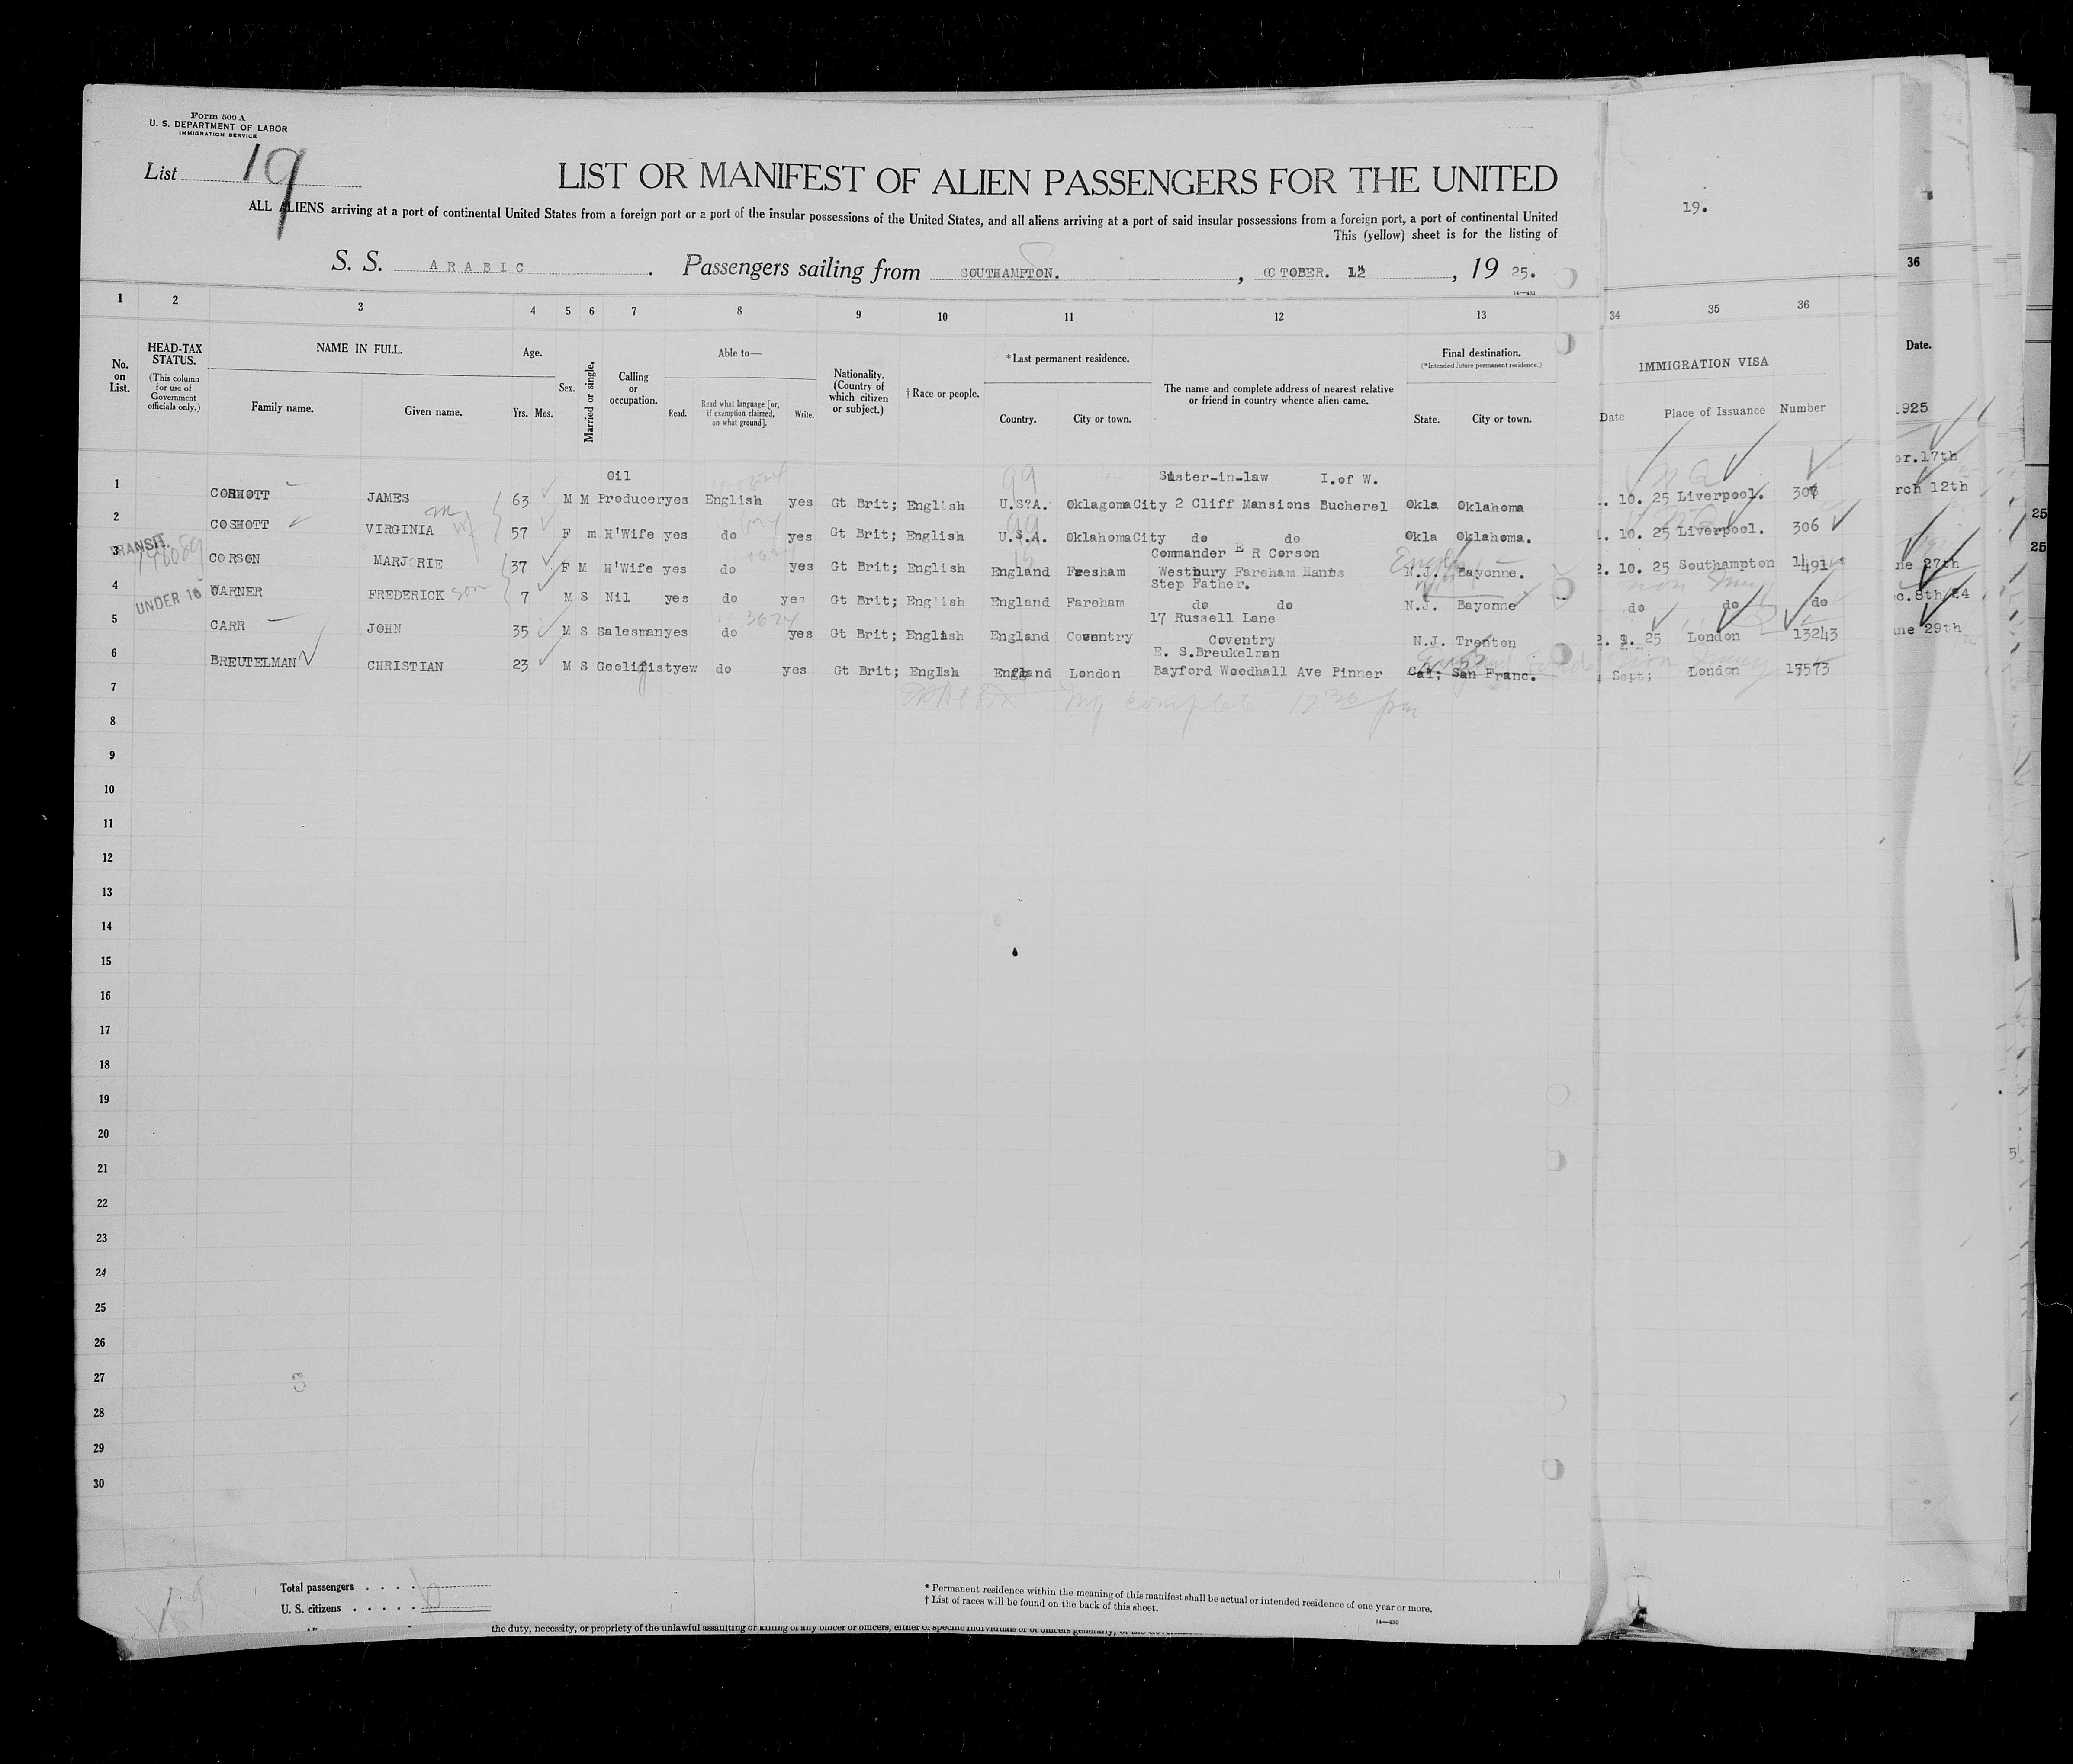 Form 500 A
U. S. DEPARTMENT OF LABOR
IMMIGRATION SERVICE
List 19
LIST OR MANIFEST OF ALIEN PASSENGERS FOR THE UNITED
ALL ALIENS arriving at a port of continental United States from a foreign port or a port of the insular possessions of the United States, and all aliens arriving at a port of said insular possessions from a foreign port, a port of continental United
This (yellow) sheet is for the listing of
19.
S. S. ARABIC . Passengers sailing from SOUTHAMPTON. , OCTOBER. 12 , 19 25.
14—431
1 2 3 4 5 6 7 8 9 10 11 12 13 34 35 36
36
No. on List.
HEAD-TAX STATUS.
(This column for use of Government officials only.)
NAME IN FULL.
Family name. Given name.
Age.
Yrs. Mos.
Sex.
Married or single.
Calling or occupation.
Able to—
Read. Read what language [or, if exemption claimed, on what ground]. Write.
Nationality. (Country of which citizen or subject.)
† Race or people.
*Last permanent residence.
Country. City or town.
The name and complete address of nearest relative or friend in country whence alien came.
Final destination.
(*Intended future permanent residence.)
State. City or town.
IMMIGRATION VISA
Date Place of Issuance Number
Date.
1925
Oil Sister-in-law I.of W.
1 COSHOTT JAMES 63 M M Producer yes English yes Gt Brit; English U.S?A. OklagomaCity 2 Cliff Mansions Bucherel Okla Oklahoma 10. 25 Liverpool. 307
2 COSHOTT VIRGINIA 57 F m H'Wife yes do yes Gt Brit; English U.S.A. OklahomaCity do do Okla Oklahoma. 10. 25 Liverpool. 306
TRANSIT.
Commander E R Corson
3 CORSON MARJORIE 37 F M H'Wife yes do yes Gt Brit; English England Fresham Westbury Fareham Hants N.J. Bayonne. 2. 10. 25 Southampton 1491
Step Father.
4 UNDER 16 WARNER FREDERICK son 7 M S Nil yes do yes Gt Brit; English England Fareham do do N.J. Bayonne do do do
17 Russell Lane
5 CARR JOHN 35 M S Salesman yes do yes Gt Brit; English England Coventry Coventry N.J. Trenton 2. 9. 25 London 13243
E. S.Breukelman
6 BREUTELMAN CHRISTIAN 23 M S Geolifist yew do yes Gt Brit; Englsh England London Bayford Woodhall Ave Pinner Cal; San Franc. Sept; London 17573
complete 12 30 pm
7
8
9
10
11
12
13
14
15
16
17
18
19
20
21
22
23
24
25
26
27
28
29
30
Total passengers . . . . 6
U. S. citizens . . . . .
* Permanent residence within the meaning of this manifest shall be actual or intended residence of one year or more.
† List of races will be found on the back of this sheet.
14—430
the duty, necessity, or propriety of the unlawful assaulting or killing of any officer or officers, either of specific individuals or of officers generally, of the